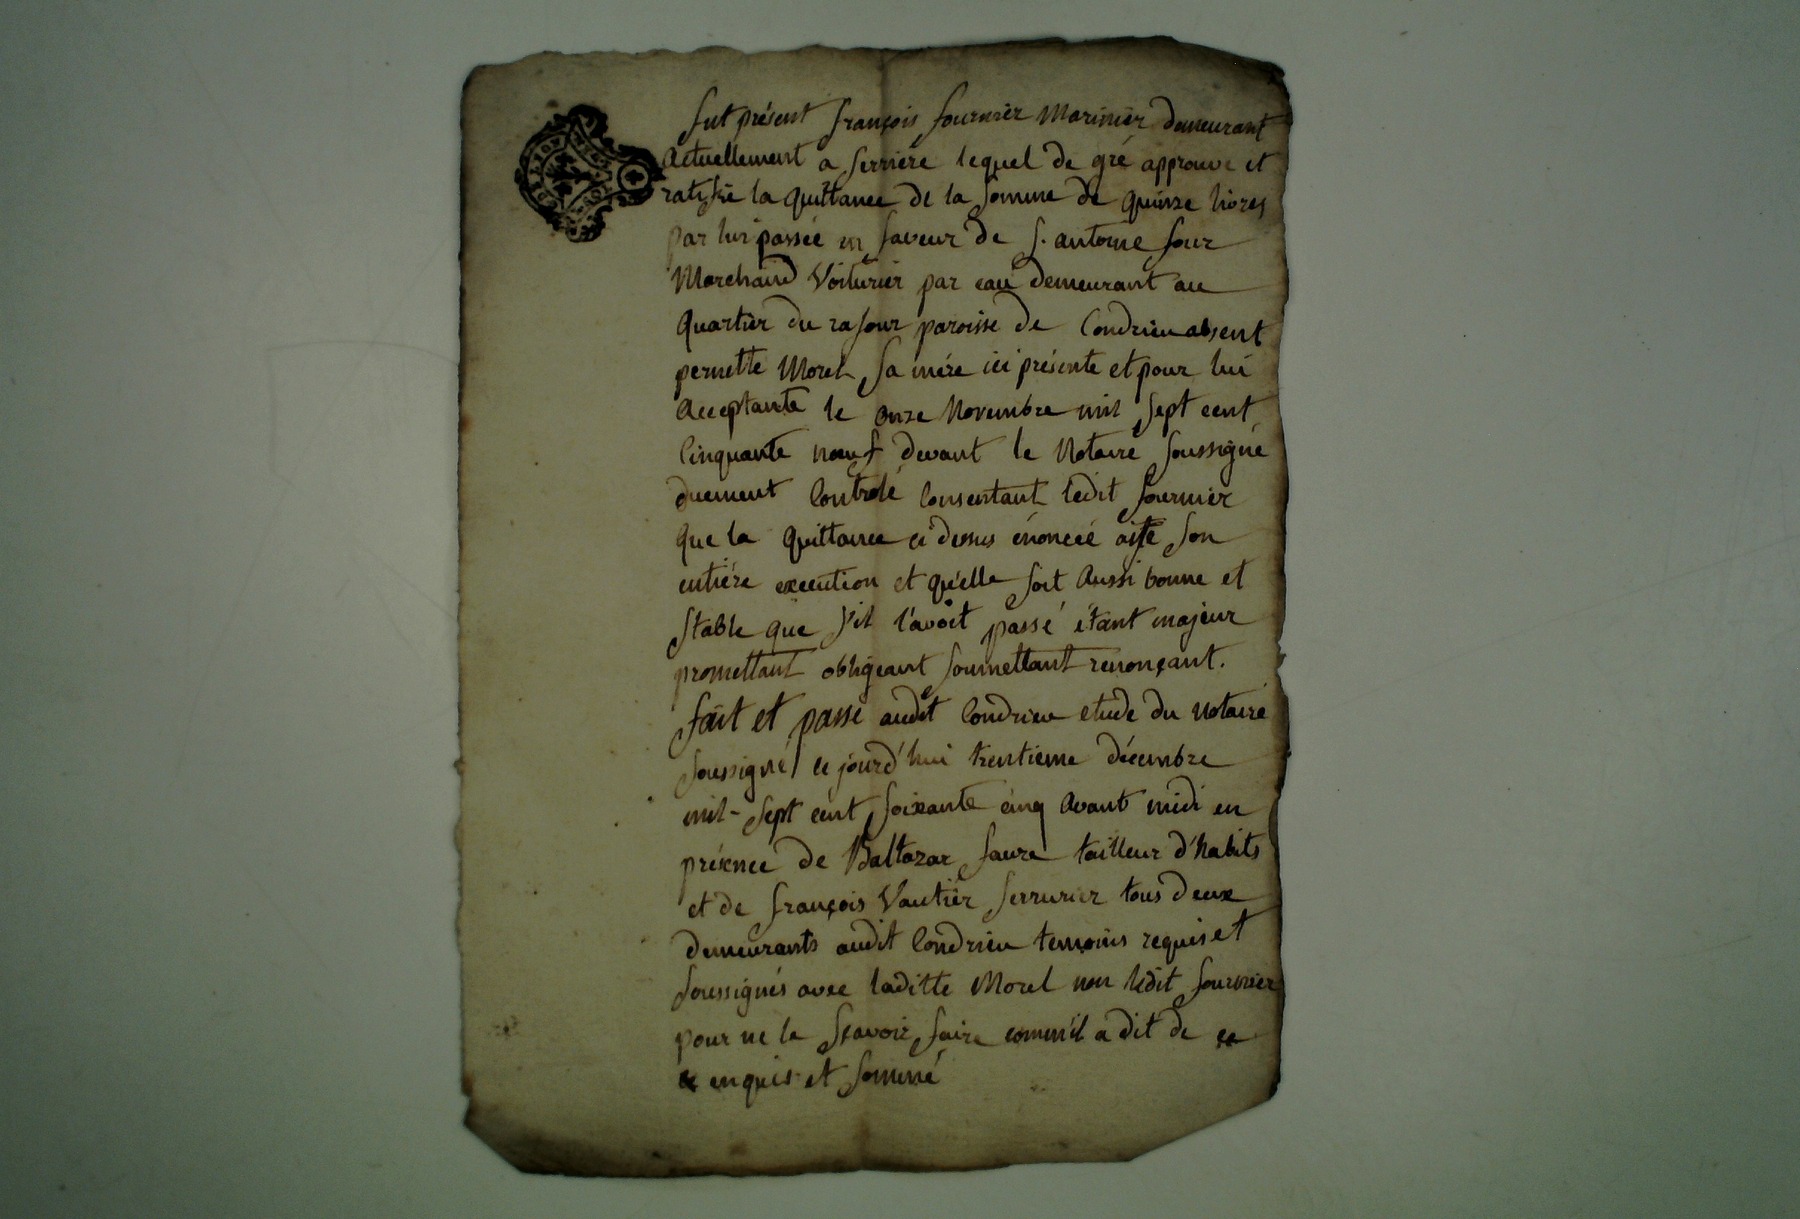 fut présent françois fournier Marinier demeurant
actuellement a serriere lequel de gré approuve et
ratifie la quittance de la somme de quinze livres
par lui passée en faveur de s. antoine four
Marchand Voiturier par eau demeurant au
quartier du rafour paroisse de Condrieu absent
pernette Morel sa mére ici présente et pour lui
acceptante le onze Novembre mil sept cent
Cinquante neuf devant le Notaire soussigné
duement Controlé Consentant ledit fournier
que la quittance ci dessus énoncéé aite son
entiére execution et qu'elle soit aussi bonne et
stable que s'il l'avoit passé étant majeur
promettant obligeant soumettant renonçant.
fait et passé audit Condrieu etude du notaire
soussigné ce jourd'hui trentieme décembre
mil-sept cent soixante cinq avant midi en
présence de Baltazar faure tailleur d'habits
et de françois Vautier serrurier tous deux
demeurants audit Condrieu temoins requis et
soussignés avec laditte Morel non ledit fournier
pour ne le sçavoir faire comm'il a dit de ce
enquis et sommé